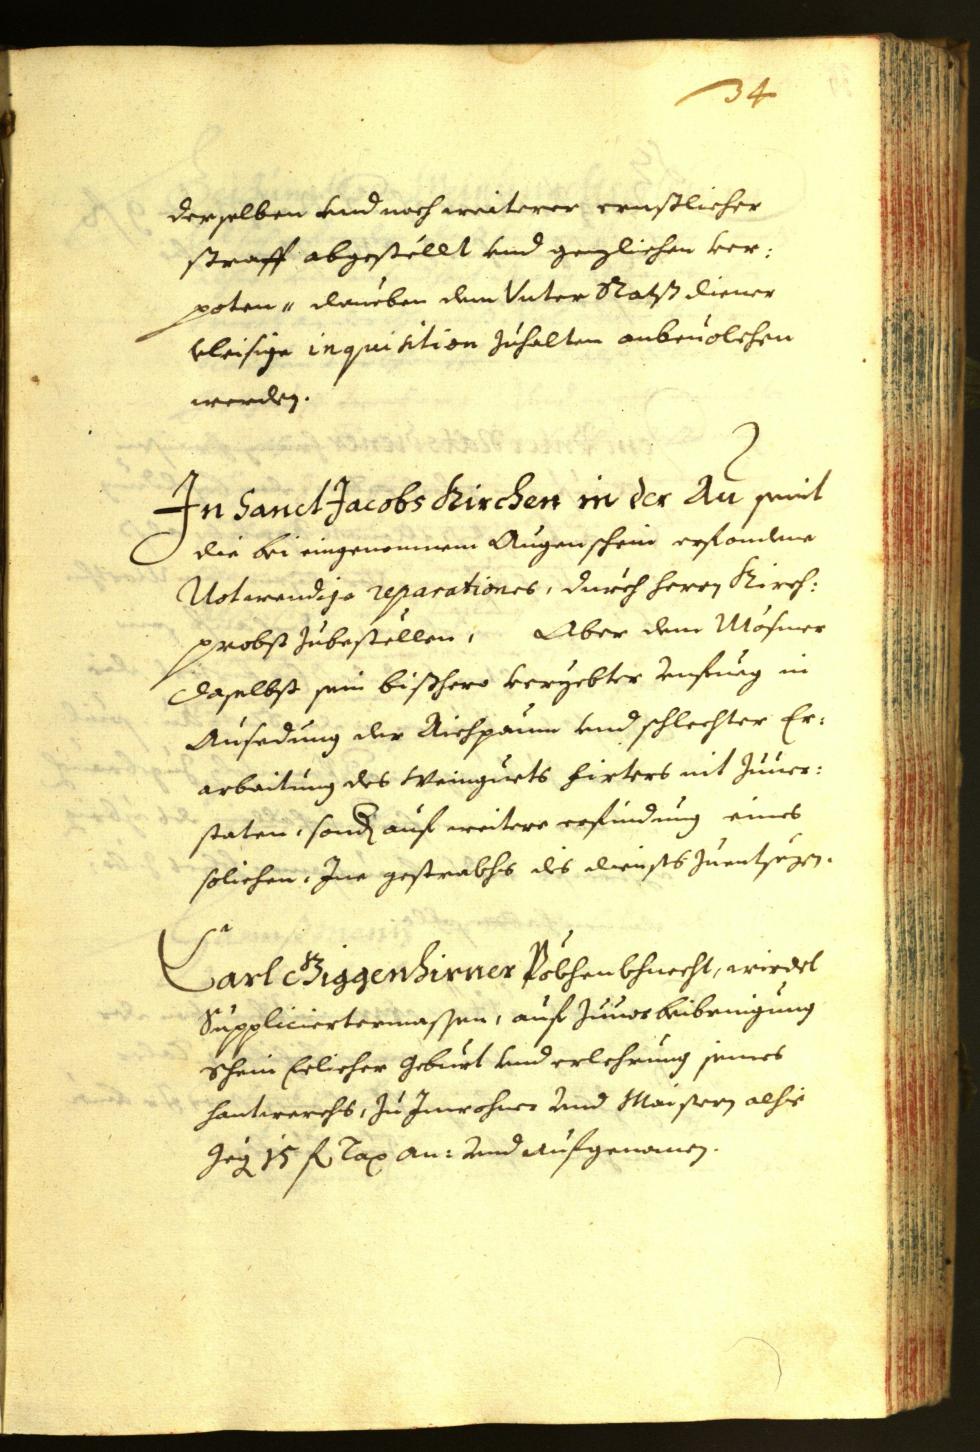 34
derselben vnd noch weiterer ernstlicher
straff abgestëllt vnd genzlichen ver:
poten " denëben dem Vnter Ratß diener
vleisige inquisition zuhalten anbeuolchen
werden.
In Sanct Jacobs Kirchen in der Au seint
die bei eingenomnem Augenschein erfondene
Notwendige reparationes, durch herrn Kirch:
probst zubestëllen, Aber dem Mösner
daselbst sein bißhero veryebter in
der Aichpaum vnd schlechter Er:
arbaitung des Weinguets hirters nit zuuer:
staten, sonder auf weitere erfindung eines
solichen, Ine gestrakhs des diensts zuentsezen.
Carl Giggenhirner Pökhenkhnecht, wirdet
Suppliciertermassen, auf zuuor beibringung
Schein Eelicher Geburt vnd erlehrung seines
hantwerchs, zu Inwohner vnd Maistern alhie
Geg 15 f Tax an: vnd aufgenomen.